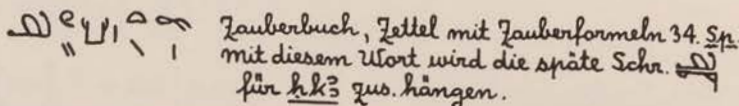 Zauberbuch, Zettel mit Zauberformeln 34. Sp.
mit diesem Wort wird die späte Schr.
für ḥkꜣ zus. hängen.